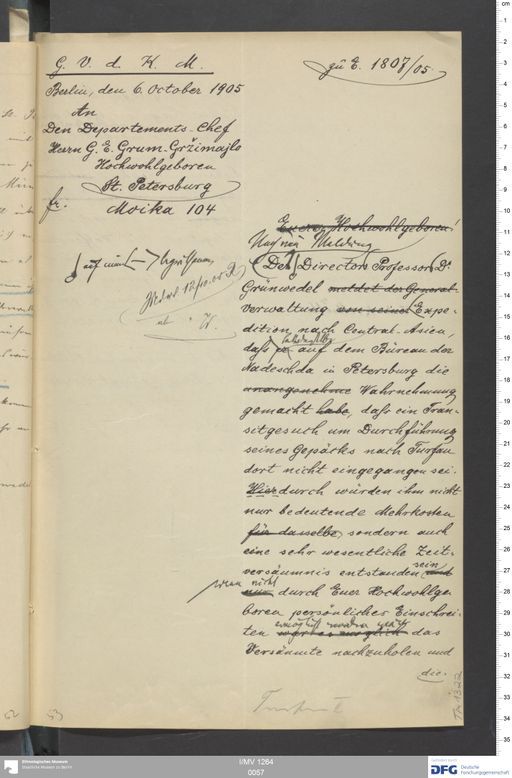 G. V. d. K. M.
zu E. 1807/05.
Berlin, den 6. October 1905
An
Den Departements-Chef
Herrn G. E. Grum-Gržimajlo
Hochwohlgeboren
St. Petersburg
fr. Moika 104
Euerer Hochwohlgeboren!
Nach einer Meldung
Des Directors Professor Dr.
Grünwedel meldet der General-
verwaltung von seiner Expe-
dition nach Central-Asien,
daß er auf dem Büreau der
Nadeschda in Petersburg die
unangenehme Wahrnehmung
gemacht habe, daß ein Tran-
sitgesuch um Durchführung
seines Gepäcks nach Turfan
dort nicht eingegangen sei.
Hierdurch würden ihm nicht
nur bedeutende Mehrkosten
für dasselbe, sondern auch
eine sehr wesentliche Zeit-
versäumnis entstanden sein
wenn nicht
nur durch Euer Hochwohlge
boren persönliches Einschrei-
ten wäre es möglich das
Versäumte nachzuholen und
die.
Turfan II
TA 1322
52
53
Ethnologisches Museum
Staatliche Museen zu Berlin
I/MV 1264
0057
gefördert durch
DFG Deutsche
Forschungsgemeinschaft
cm
1
2
3
4
5
6
7
8
9
10
11
12
13
14
15
16
17
18
19
20
21
22
23
24
25
26
27
28
29
30
31
32
33
34
35